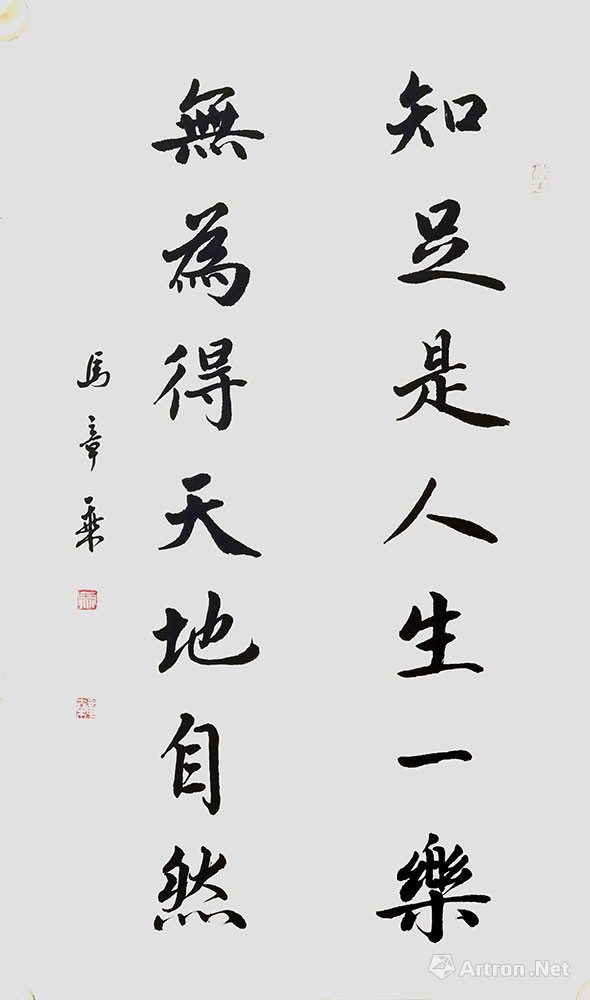 知足是人生一樂
無為得天地自然
馬章乘
Artron.Net